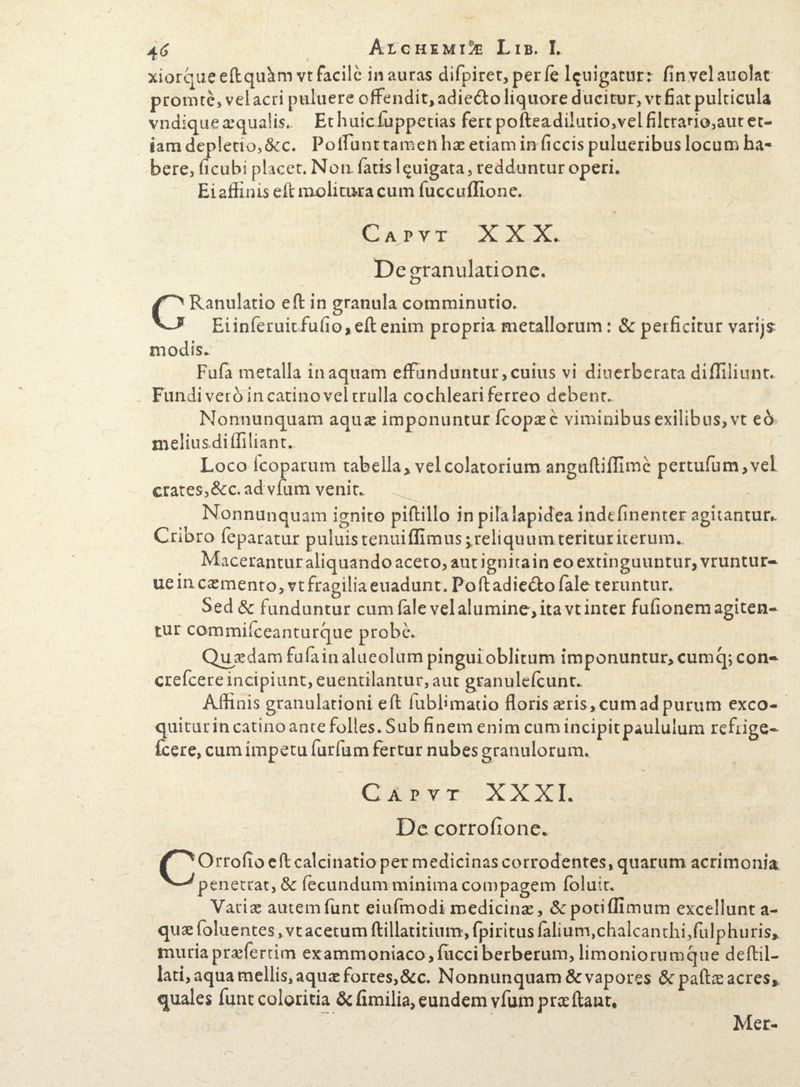 46 ALCHEMIÆ LIB. I.
xiorq́ue eſt quàm vt facilè in auras diſpiret, per ſe lęuigatur: ſin vel auolat
promtè, vel acri puluere offendit, adiecto liquore ducitur, vt fiat pulticula
vndique æqualis. Et huic ſuppetias fert poſtea dilutio, vel filtratio, aut et-
iam depletio, &c. Poſſunt tamen hæ etiam in ſiccis pulueribus locum ha-
bere, ſicubi placet. Non ſatis lęuigata, redduntur operi.
Ei affinis eſt molitura cum ſuccuſſione.
CAPVT XXX.
De granulatione.
GRanulatio eſt in granula comminutio.
Ei inſeruit fuſio, eſt enim propria metallorum: & perficitur varijs
modis.
Fuſa metalla in aquam effunduntur, cuius vi diuerberata diſſiliunt.
Fundi verò in catino vel trulla cochleari ferreo debent.
Nonnunquam aquæ imponuntur ſcopæ è viminibus exilibus, vt eò
melius diſſiliant.
Loco ſcoparum tabella, vel colatorium anguſtiſſimè pertuſum, vel
crates, &c. ad vſum venit.
Nonnunquam ignito piſtillo in pila lapidea indeſinenter agitantur.
Cribro ſeparatur puluis tenuiſſimus; reliquum teritur iterum.
Macerantur aliquando aceto, aut ignita in eo extinguuntur, vruntur-
ue in cæmento, vt fragilia euadunt. Poſt adiecto ſale teruntur.
Sed & funduntur cum ſale vel alumine, ita vt inter fuſionem agiten-
tur commiſceanturq́ue probè.
Quædam fuſa in alueolum pingui oblitum imponuntur, cumq́; con-
creſcere incipiunt, euentilantur, aut granuleſcunt.
Affinis granulationi eſt ſublimatio floris æris, cum ad purum exco-
quitur in catino ante folles. Sub finem enim cum incipit paululum refrige-
ſcere, cum impetu ſurſum fertur nubes granulorum.
CAPVT XXXI.
De corroſione.
COrroſio eſt calcinatio per medicinas corrodentes, quarum acrimonia
penetrat, & ſecundum minima compagem ſoluit.
Variæ autem ſunt eiuſmodi medicinæ, & potiſſimum excellunt a-
quæ ſoluentes, vt acetum ſtillatitium, ſpiritus ſalium, chalcanthi, ſulphuris,
muria præſertim ex ammoniaco, ſucci berberum, limoniorumq́ue deſtil-
lati, aqua mellis, aquæ fortes, &c. Nonnunquam & vapores & paſtæ acres,
quales ſunt coloritia & ſimilia, eundem vſum præſtant.
Mer-